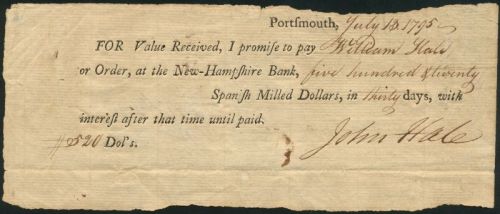 Portſmouth, July 18. 1795
FOR Value Received, I promiſe to pay William Hale
or Order, at the New-Hampſhire Bank, five hundred & twenty
Spaniſh Milled Dollars, in thirty days, with
intereſt after that time until paid.
John Hale
$520 Dol's.